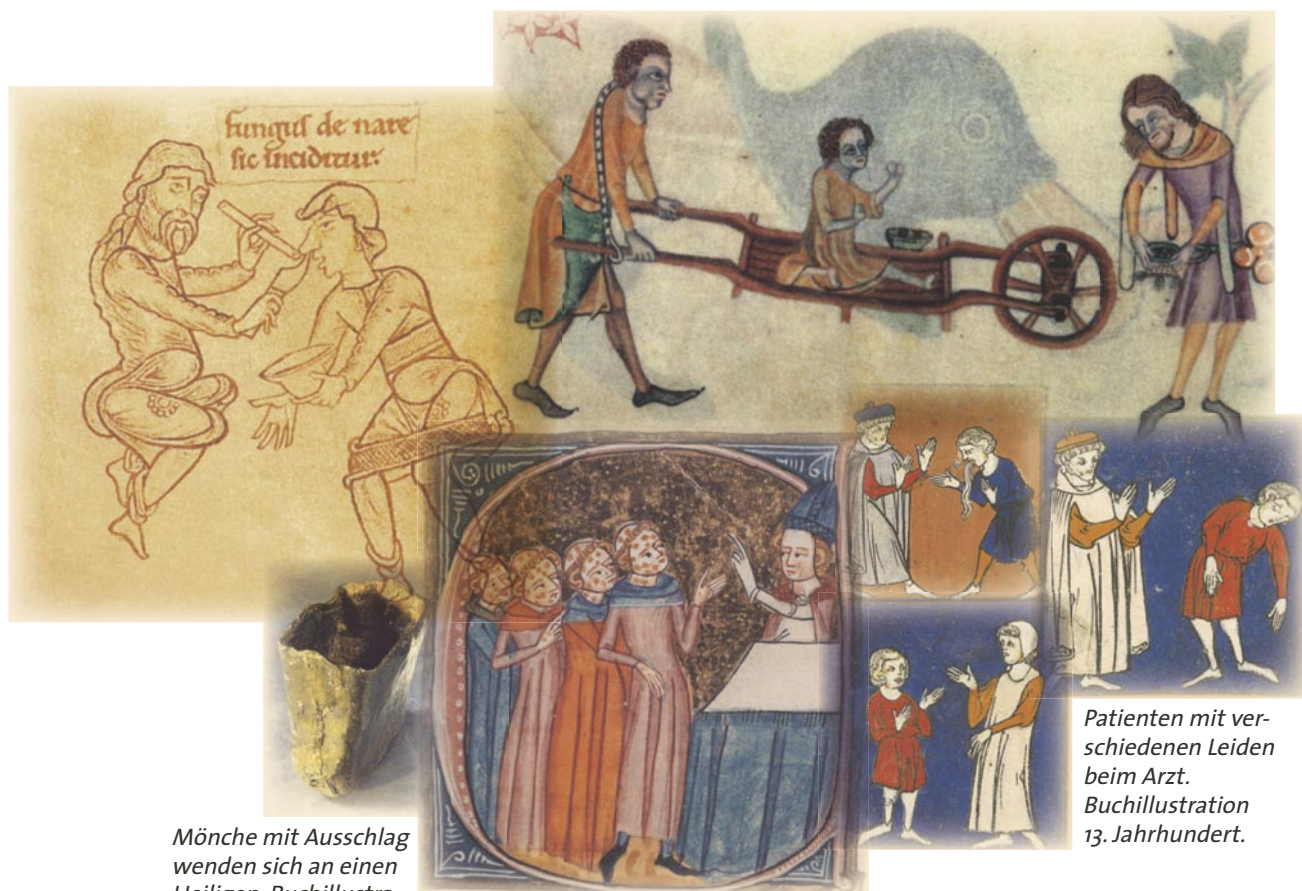 fungus de nare
sic inciditur.
Patienten mit ver-
schiedenen Leiden
beim Arzt.
Buchillustration
13. Jahrhundert.
Mönche mit Ausschlag
wenden sich an einen
Heiligen. Buchillustra-